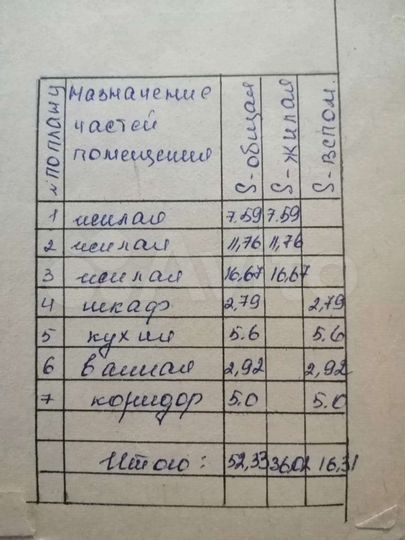 № по плану
Назначение
частей
помещения
S-общая
S-жилая
S-вспом.
1 жилая 7.59 7.59
2 жилая 11,76 11,76
3 жилая 16,67 16,67
4 шкаф 2,79 2,79
5 кухня 5.6 5.6
6 ванная 2,92 2,92
7 коридор 5.0 5.0
Итого: 52,33 36,02 16,31